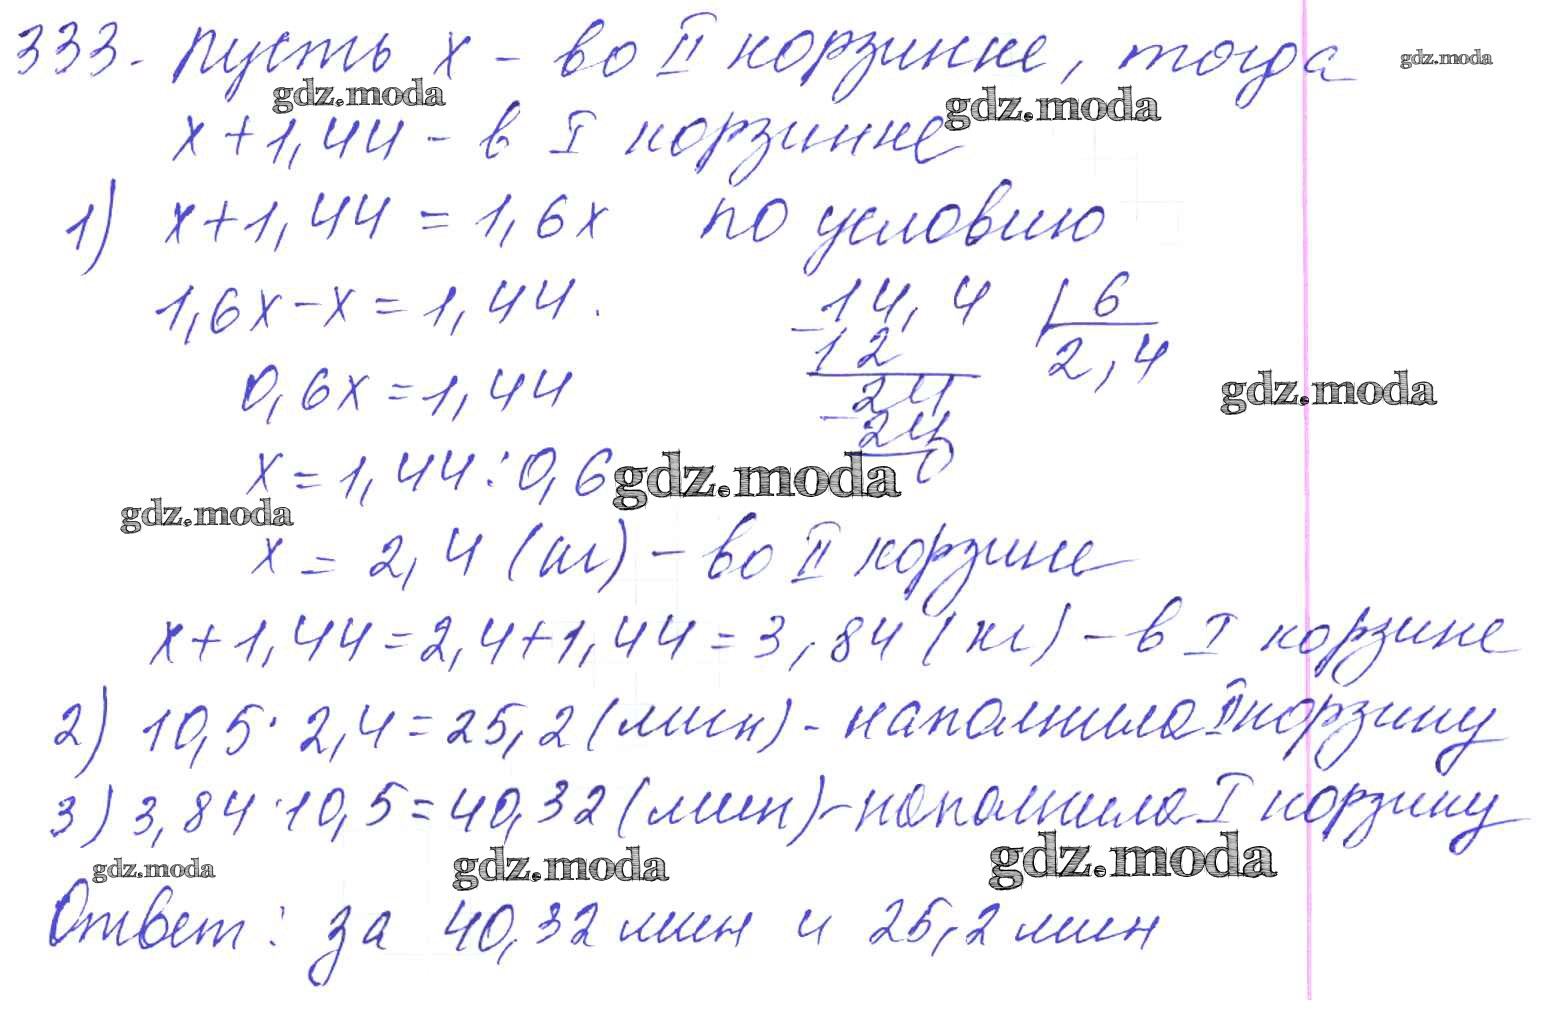 333. Пусть x - во II корзинке, тогда gdz.moda
gdz.moda gdz.moda
x + 1,44 - в I корзинке
1) x + 1,44 = 1,6x по условию
1,6x - x = 1,44. 14,4 | 6
- 12 2,4
0,6x = 1,44 24 gdz.moda
- 24
x = 1,44 : 0,6 gdz.moda 0
gdz.moda
x = 2,4 (кг) - во II корзине
x + 1,44 = 2,4 + 1,44 = 3,84 (кг) - в I корзине
2) 10,5 · 2,4 = 25,2 (мин) - наполнила II корзину
3) 3,84 · 10,5 = 40,32 (мин) - наполнила I корзину
gdz.moda gdz.moda gdz.moda
Ответ: за 40,32 мин и 25,2 мин